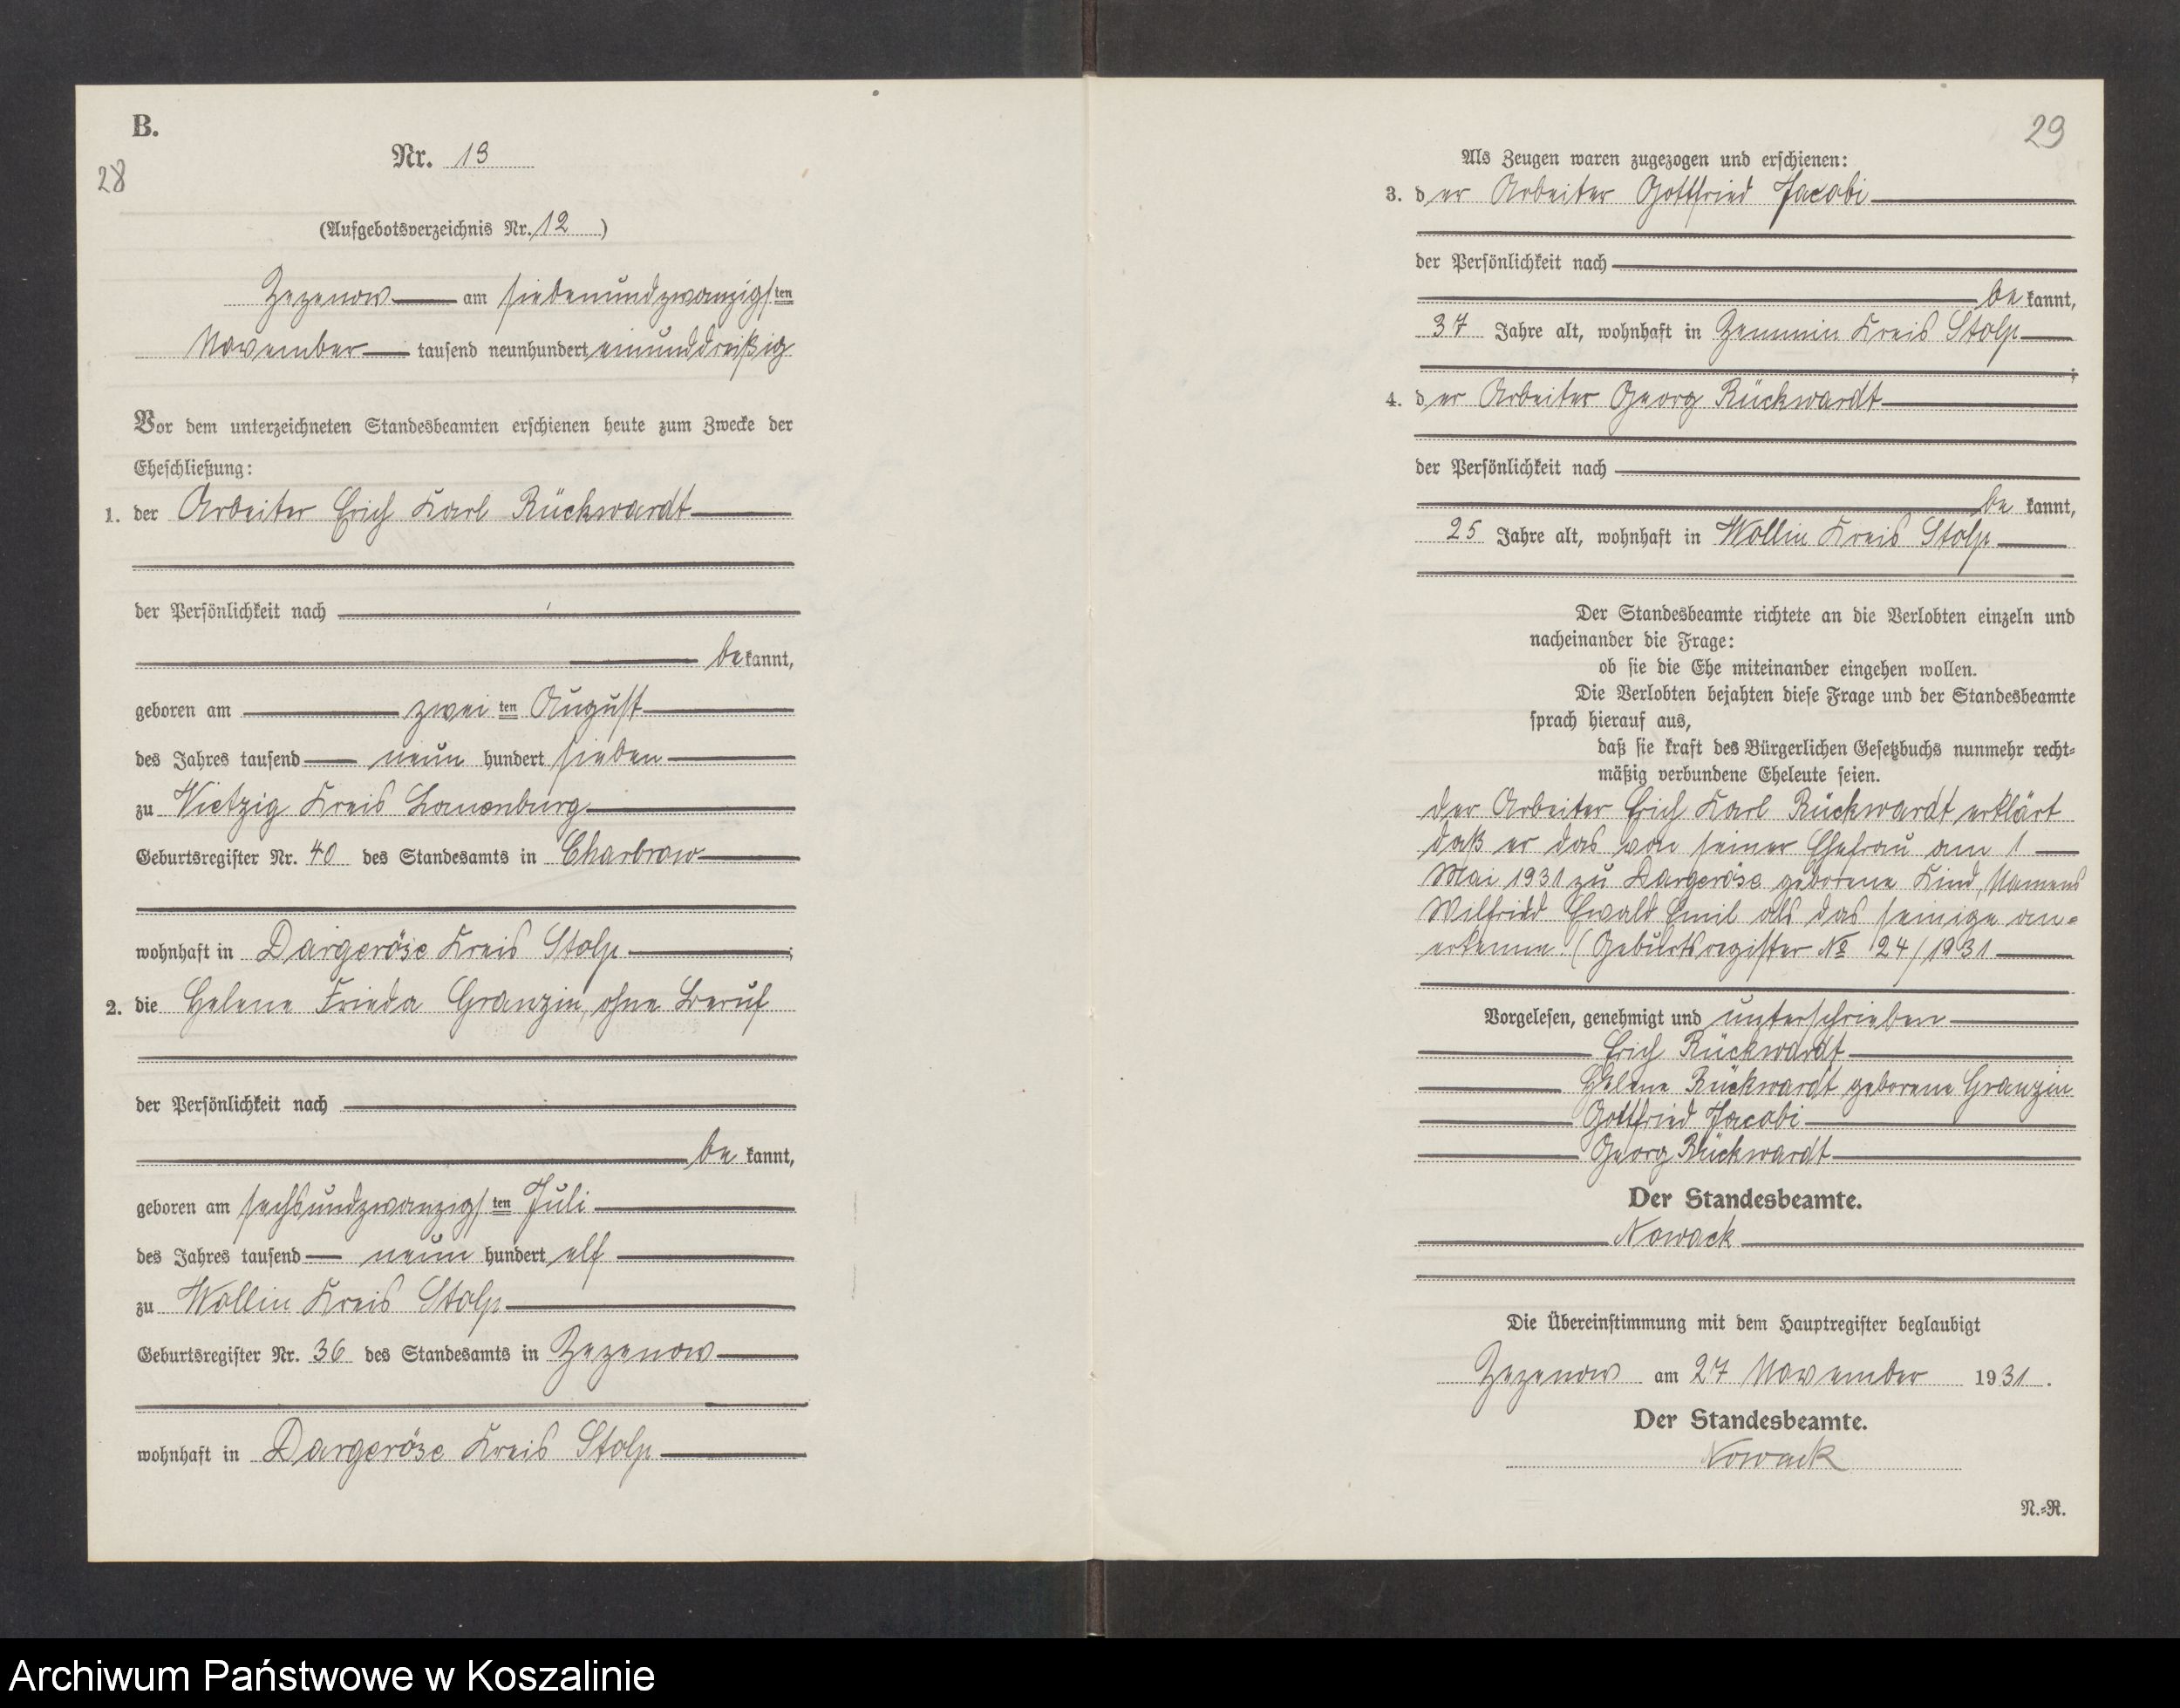 B.
28
Nr. 13
(Aufgebotsverzeichnis Nr. 12)
Zezenow am siebenundzwanzigsten
November tausend neunhundert einunddreißig
Vor dem unterzeichneten Standesbeamten erschienen heute zum Zwecke der
Eheschließung:
1. der Arbeiter Erich Karl Rückwardt
der Persönlichkeit nach
bekannt,
geboren am zweiten August
des Jahres tausend neun hundert sieben
zu Vietzig Kreis Lauenburg
Geburtsregister Nr. 40 des Standesamts in Charbrow
wohnhaft in Dargeröse Kreis Stolp ;
2. die Helene Frieda Granzin, ohne Beruf
der Persönlichkeit nach
be kannt,
geboren am sechsundzwanzigsten Juli
des Jahres tausend neun hundert elf
zu Wollin Kreis Stolp
Geburtsregister Nr. 36 des Standesamts in Zezenow
wohnhaft in Dargeröse Kreis Stolp
29
Als Zeugen waren zugezogen und erschienen:
3. der Arbeiter Gottfried Jacobi
der Persönlichkeit nach
be kannt,
37 Jahre alt, wohnhaft in Zemmin Kreis Stolp
;
4. der Arbeiter Georg Rückwardt
der Persönlichkeit nach
be kannt,
25 Jahre alt, wohnhaft in Wollin Kreis Stolp
Der Standesbeamte richtete an die Verlobten einzeln und
nacheinander die Frage:
ob sie die Ehe miteinander eingehen wollen.
Die Verlobten bejahten diese Frage und der Standesbeamte
sprach hierauf aus,
daß sie kraft des Bürgerlichen Gesetzbuchs nunmehr recht-
mäßig verbundene Eheleute seien.
der Arbeiter Erich Karl Rückwardt erklärt
daß er das von seiner Ehefrau am 1
Mai 1931 zu Dargeröse geborene Kind, Namens
Wilfridd Ewald Emil als das seinige an-
erkenne. (Geburtsregister № 24/1931
Vorgelesen, genehmigt und unterschrieben
Erich Rückwardt
Helene Rückwardt geborene Granzin
Gottfried Jacobi
Georg Rückwardt
Der Standesbeamte.
Nowack
Die Übereinstimmung mit dem Hauptregister beglaubigt
Zezenow am 27 November 1931.
Der Standesbeamte.
Nowack
N.-R.
Archiwum Państwowe w Koszalinie